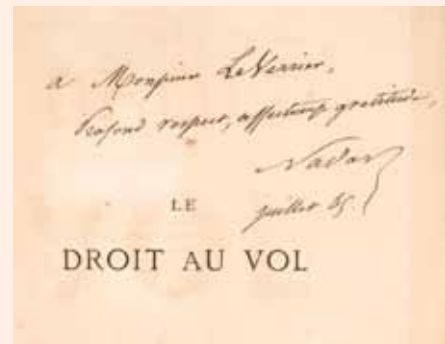 a Monsieur LeVerrier,
Profond respect, affectueuse gratitude,
Nadar
juillet 65.
LE
DROIT AU VOL